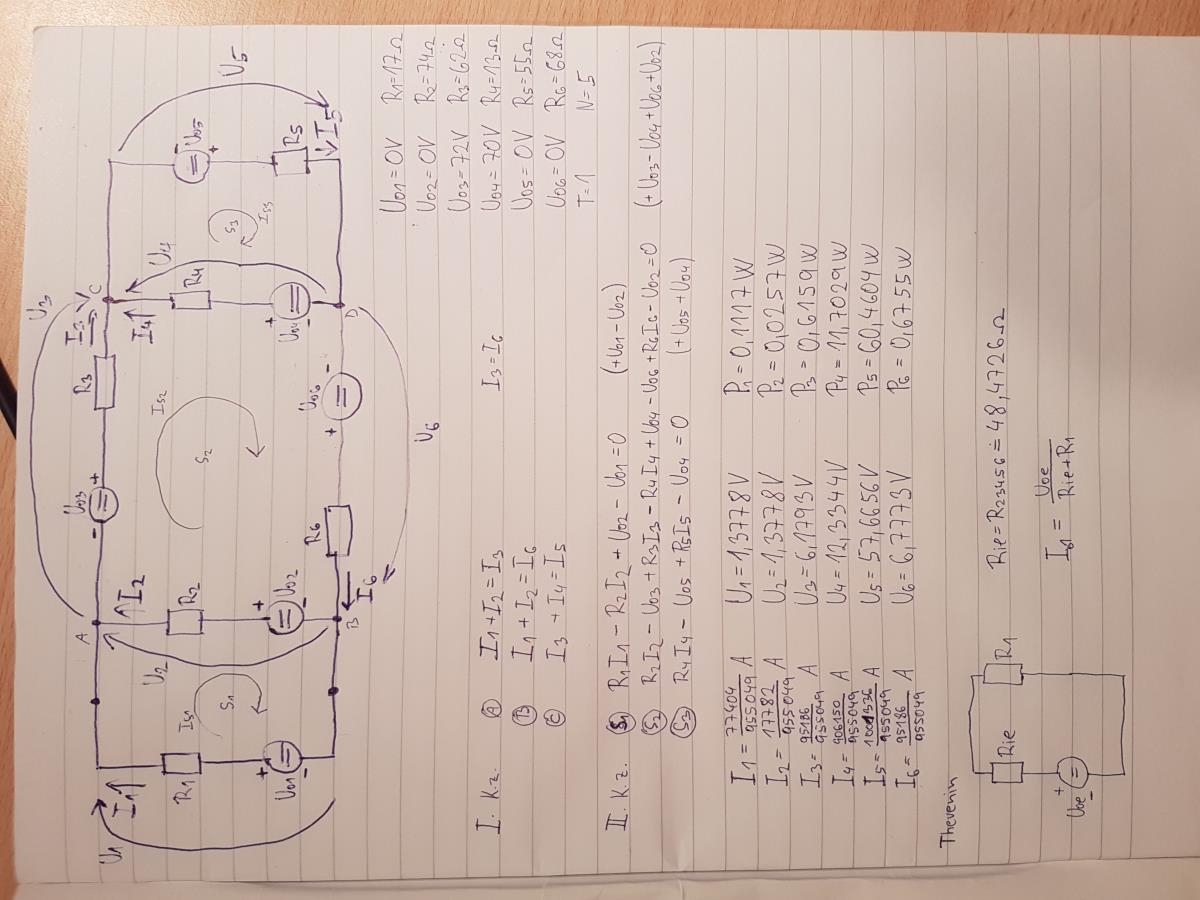 U1 I1 R1 U01 + -
IS1 S1
U2 A I2 R2 + U02 - B
U03 - + R3 I3 U3 C
IS2 S2
I6 R6 + U06 - U6 D
I4 R4 U4 + U04 -
S3 IS3
U5 - U05 + R5 I5
U01=0V R1=17Ω
U02=0V R2=74Ω
U03=72V R3=62Ω
U04=70V R4=13Ω
U05=0V R5=55Ω
U06=0V R6=68Ω
T=1 N=5
I. K.z. Ⓐ I1+I2=I3 I3=I6
Ⓑ I1+I2=I6
Ⓒ I3+I4=I5
II. K.z. S1 R1I1-R2I2+U02-U01=0 (+U01-U02)
S2 R2I2-U03+R3I3-R4I4+U04-U06+R6I6-U02=0 (+U03-U04+U06+U02)
S3 R4I4-U05+R5I5-U04=0 (+U05+U04)
I1=77404/955049 A U1=1,3778V P1=0,1117W
I2=17782/955049 A U2=1,3778V P2=0,0257W
I3=95186/955049 A U3=6,1793V P3=0,6159W
I4=906150/955049 A U4=12,3344V P4=11,7029W
I5=1001336/955049 A U5=57,6656V P5=60,4604W
I6=95186/955049 U6=6,7773V P6=0,6755W
Thevenin
Rie R1 Rie=R23456≐48,4726Ω
U0e + - I61=U0e/Rie+R1